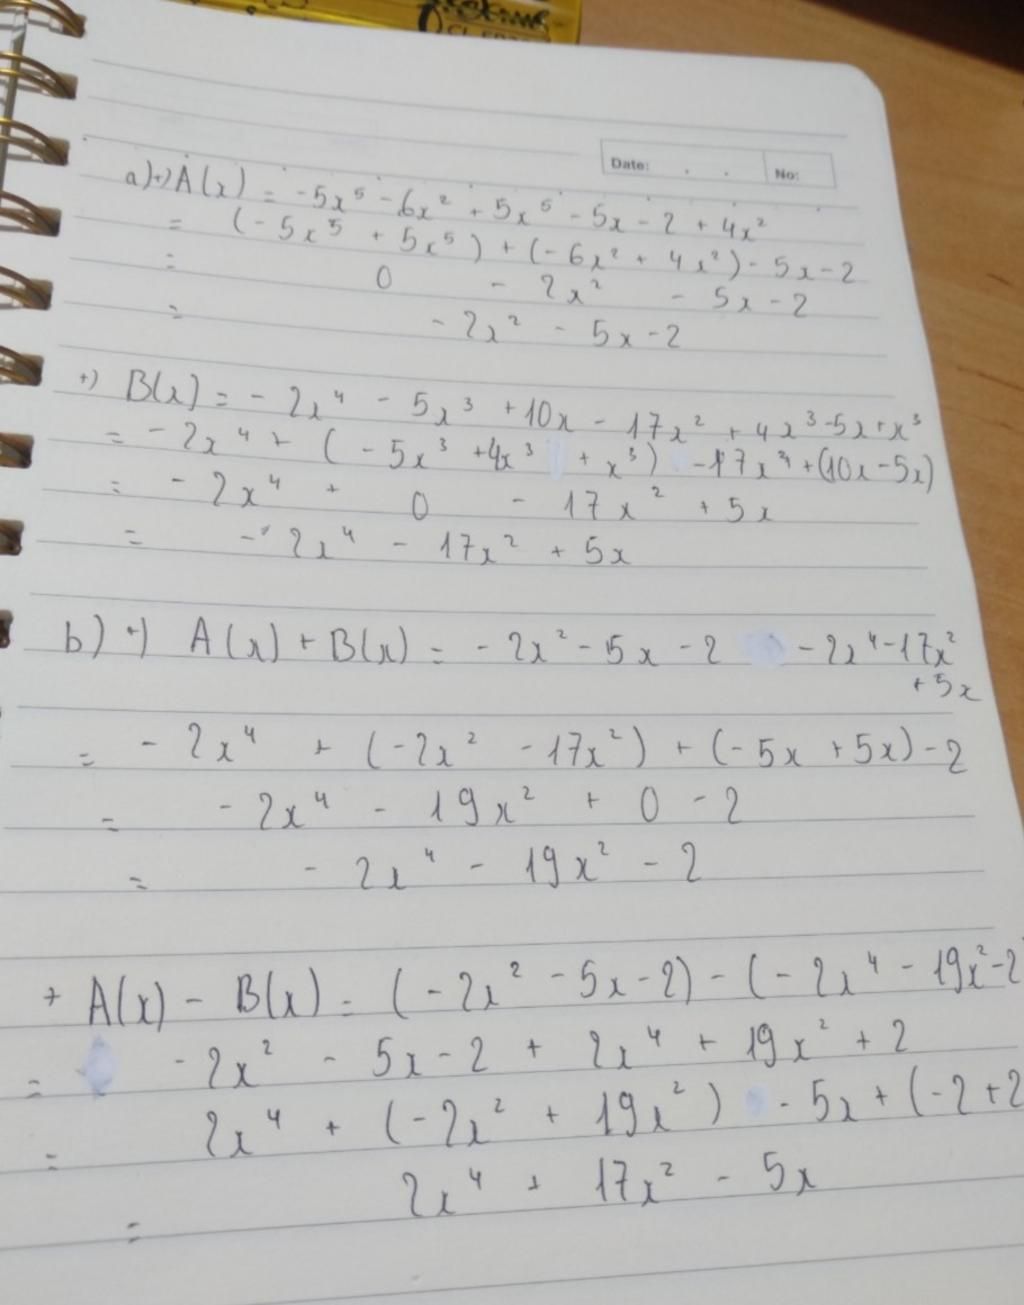 Date: . . No:
a) +) A(x) = -5x⁵ - 6x² + 5x⁵ - 5x - 2 + 4x²
= (-5x⁵ + 5x⁵) + (-6x² + 4x²) - 5x - 2
= 0 - 2x² - 5x - 2
= - 2x² - 5x - 2
+) B(x) = - 2x⁴ - 5x³ + 10x - 17x² + 4x³ - 5x + x³
= - 2x⁴ + (- 5x³ + 4x³ + x³) - 17x² + (10x - 5x)
= - 2x⁴ + 0 - 17x² + 5x
= - 2x⁴ - 17x² + 5x
b) +) A(x) + B(x) = - 2x² - 5x - 2 - 2x⁴ - 17x²
+ 5x
= - 2x⁴ + (-2x² - 17x²) + (-5x + 5x) - 2
= - 2x⁴ - 19x² + 0 - 2
= - 2x⁴ - 19x² - 2
+ A(x) - B(x) = (-2x² - 5x - 2) - (-2x⁴ - 19x² - 2
= - 2x² - 5x - 2 + 2x⁴ + 19x² + 2
= 2x⁴ + (-2x² + 19x²) - 5x + (-2 + 2
= 2x⁴ + 17x² - 5x